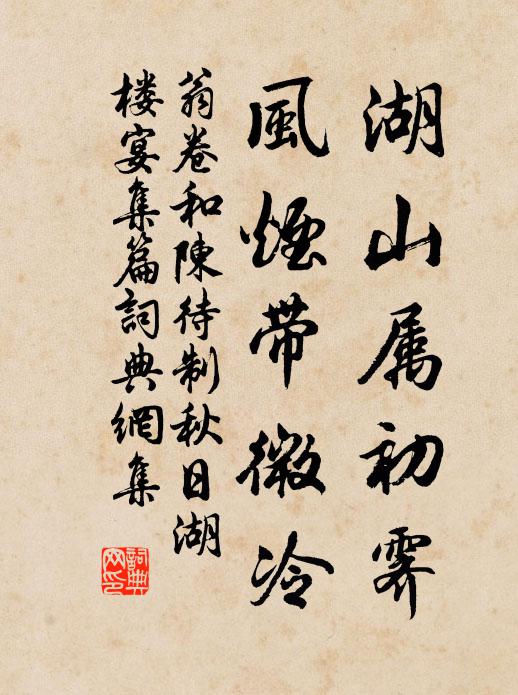 湖山属初霽
風煙帶微冷
翁卷和陳待制秋日湖
楼宴集篇詞典網集
詞典網印